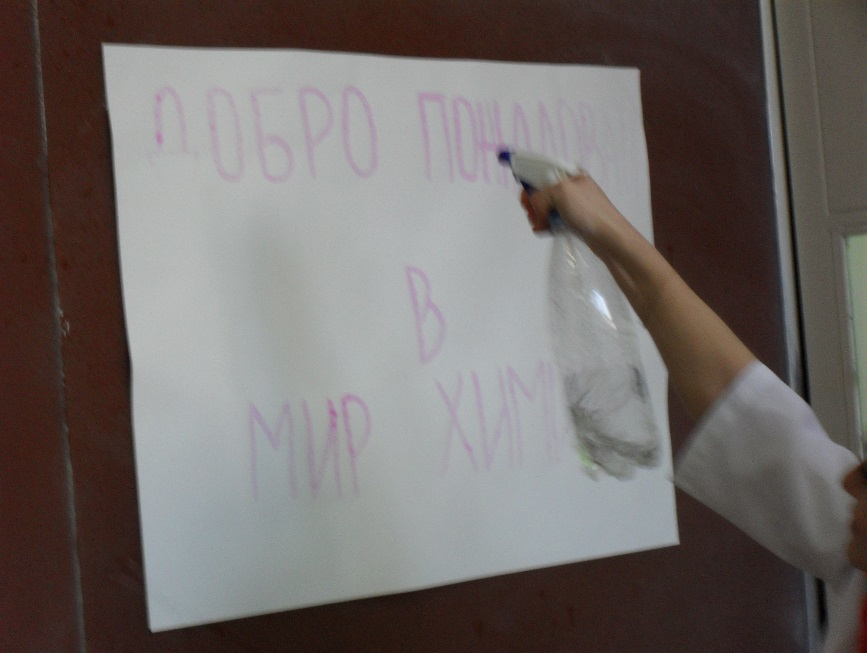 ДОБРО ПОЖАЛОВА
В
МИР ХИМИ